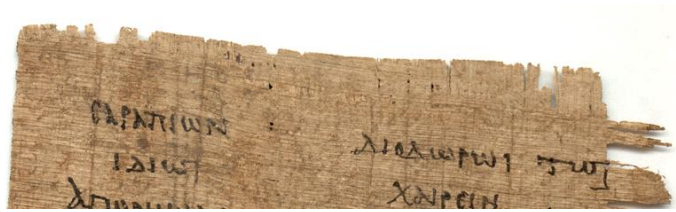 ϹΑΡΑΠΙΩΝ ΔΙΟΔΩΡΩΙ ΤΩΙ
ΙΔΙΩΙ ΧΑΙΡΕΙΝ